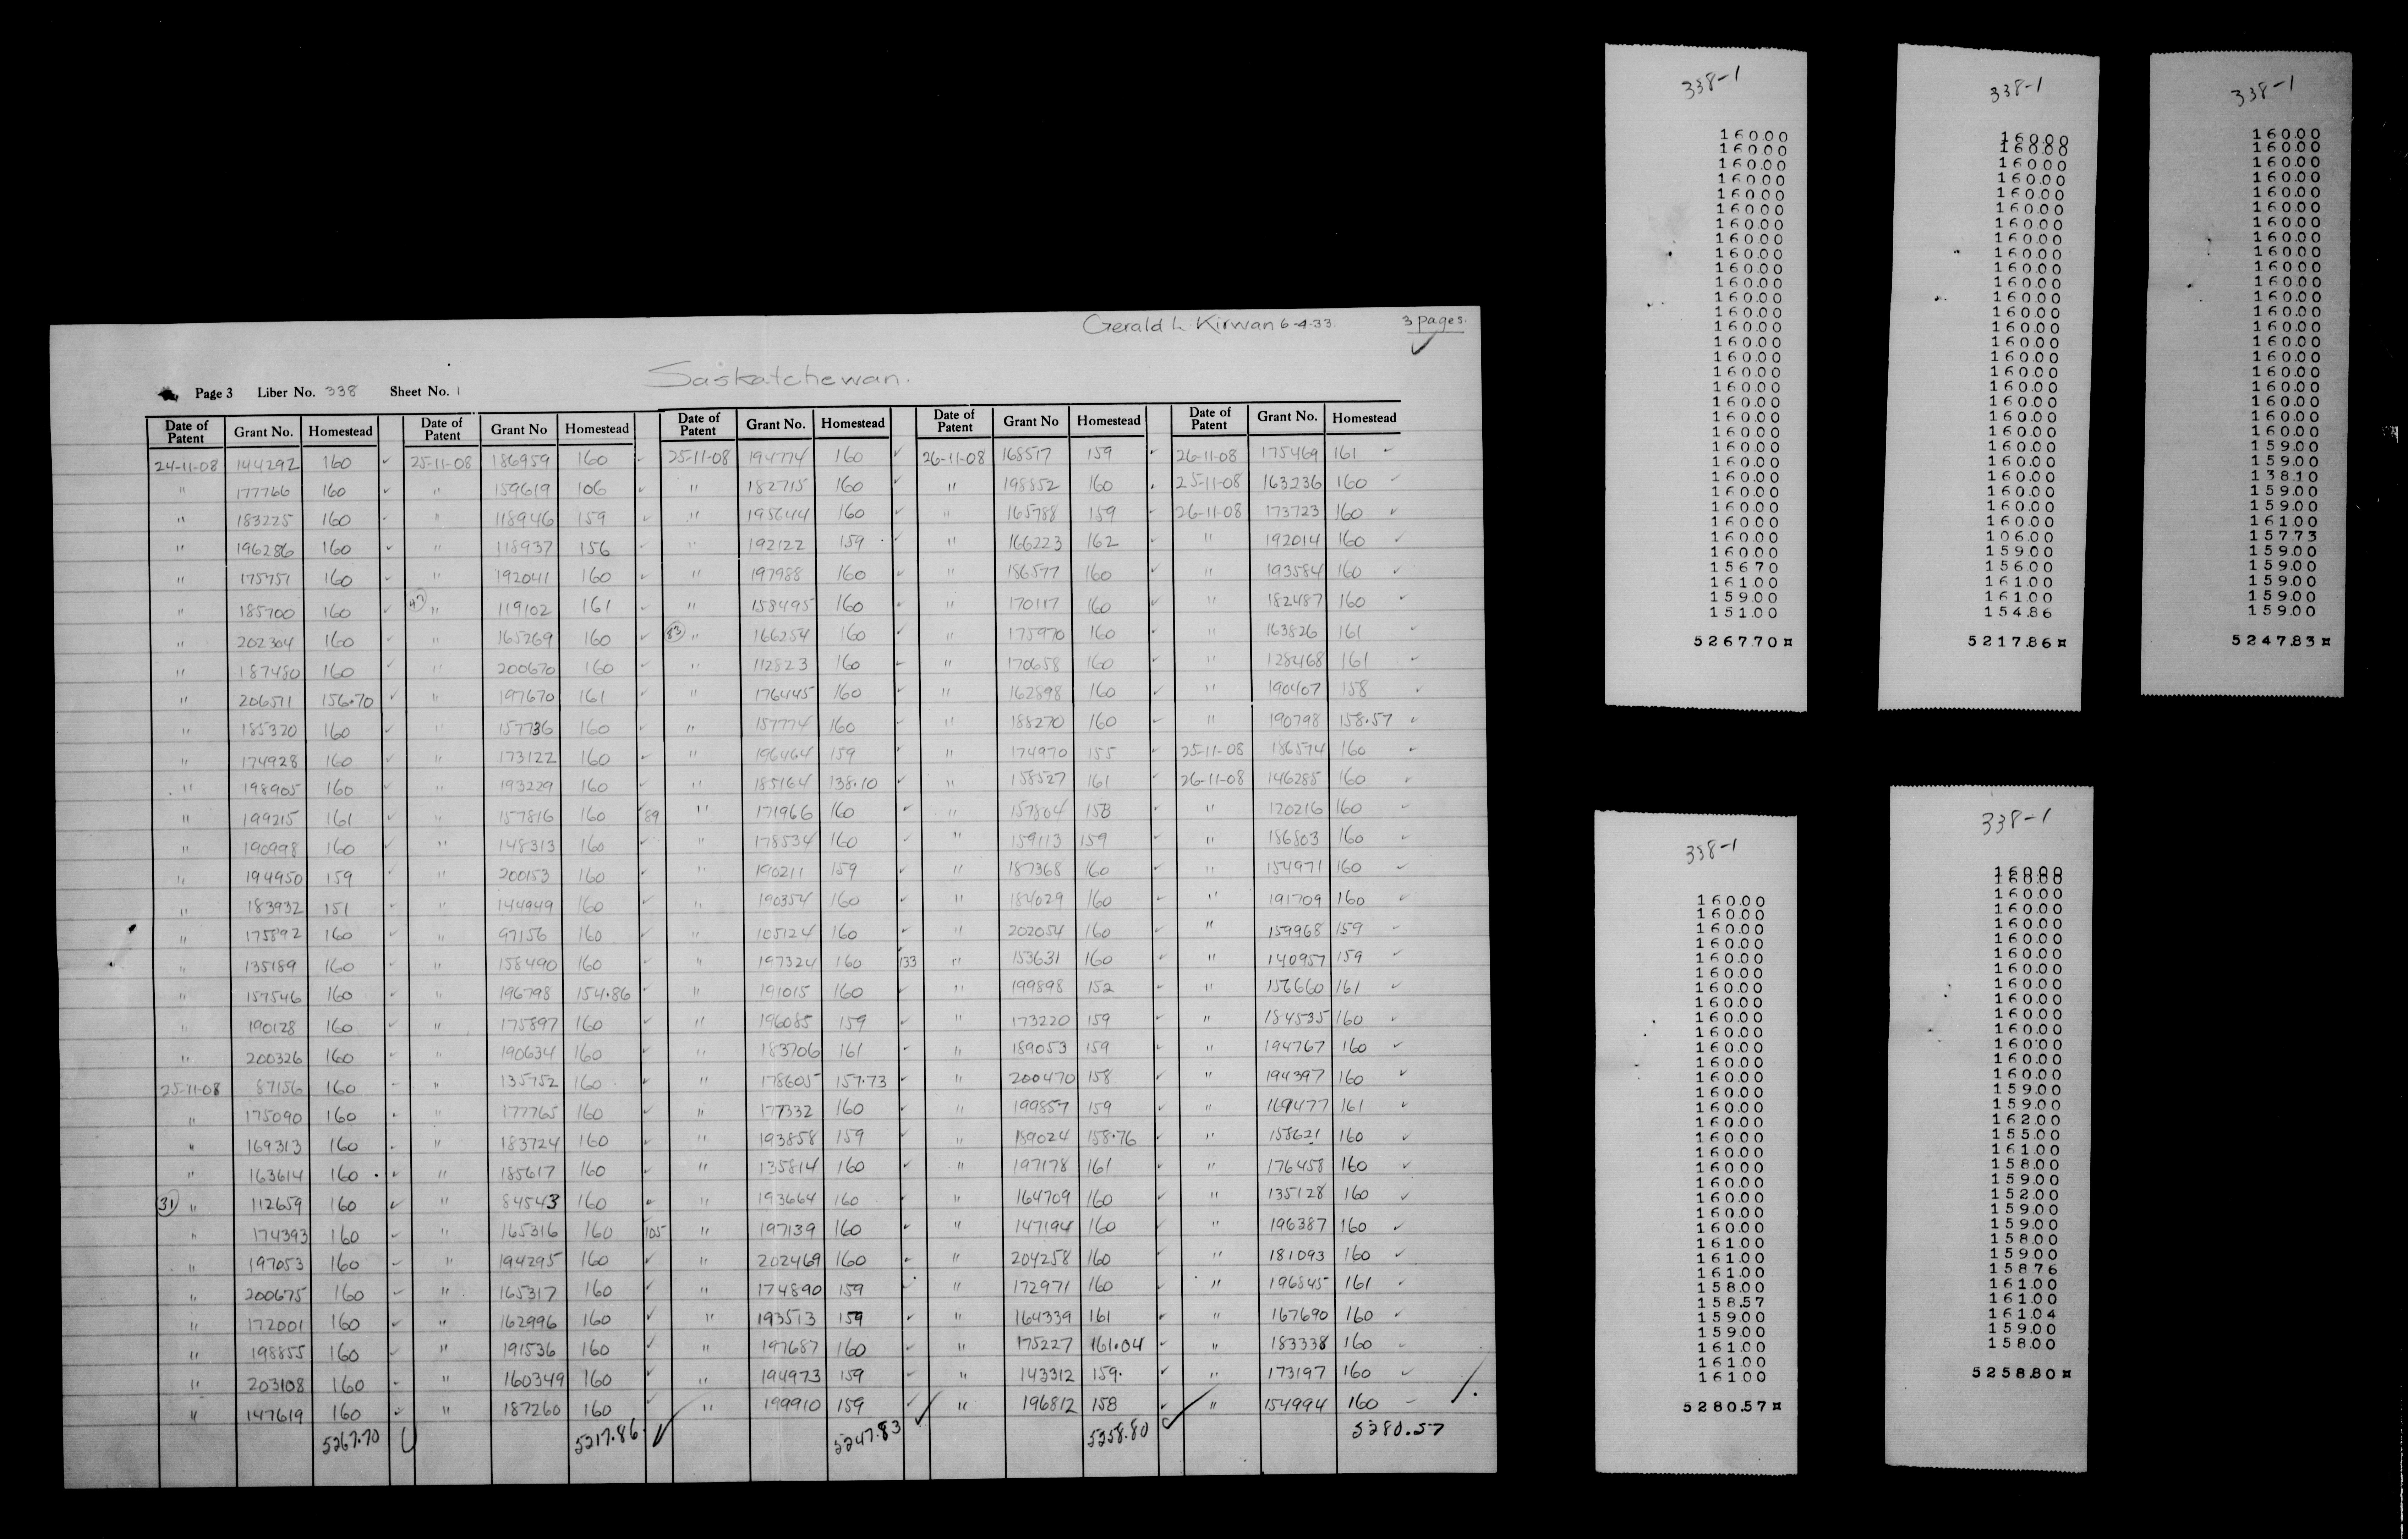 Gerald L. Kirwan 6-4-33. 3 pages.
Saskatchewan.
Page 3 Liber No. 338 Sheet No. 1
Date of Patent Grant No. Homestead Date of Patent Grant No Homestead Date of Patent Grant No. Homestead Date of Patent Grant No Homestead Date of Patent Grant No. Homestead
24-11-08 144292 160 ✓ 25-11-08 186959 160 ✓ 25-11-08 194774 160 ✓ 26-11-08 168517 159 ✓ 26-11-08 175469 161 ✓
" 177766 160 ✓ " 159619 106 ✓ " 182715 160 ✓ " 198852 160 . 25-11-08 163236 160 ✓
" 183225 160 ✓ " 118946 159 ✓ " 195644 160 ✓ " 165788 159 ✓ 26-11-08 173723 160 ✓
" 196286 160 ✓ " 118937 156 ✓ " 192122 159 ✓ " 166223 162 ✓ " 192014 160 ✓
" 175751 160 ✓ " 192041 160 ✓ " 197988 160 ✓ " 186577 160 ✓ " 193584 160 ✓
" 185700 160 ✓ 47 " 119102 161 ✓ " 158495 160 ✓ " 170117 160 ✓ " 182487 160 ✓
" 202304 160 ✓ " 165269 160 ✓ 83 " 166254 160 ✓ " 175970 160 ✓ " 163826 161 ✓
" 187480 160 ✓ " 200670 160 ✓ " 112823 160 ✓ " 170658 160 ✓ " 128468 161 ✓
" 206511 156.70 ✓ " 197670 161 ✓ " 176445 160 ✓ " 162898 160 ✓ " 190407 158 ✓
" 185320 160 ✓ " 157736 160 ✓ " 157774 160 ✓ " 188270 160 ✓ " 190798 158.57 ✓
" 174928 160 ✓ " 173122 160 ✓ " 196464 159 ✓ " 174970 155 ✓ 25-11-08 186574 160 ✓
" 198905 160 ✓ " 193229 160 ✓ " 185164 138.10 ✓ " 158527 161 ✓ 26-11-08 146285 160 ✓
" 199215 161 ✓ " 157816 160 ✓ 89 " 171966 160 ✓ " 157804 158 " 120216 160 ✓
" 190998 160 ✓ " 148313 160 ✓ " 178534 160 ✓ " 159113 159 ✓ " 186803 160 ✓
" 194950 159 ✓ " 200153 160 ✓ " 190211 159 ✓ " 187368 160 ✓ " 154971 160 ✓
" 183932 151 ✓ " 144949 160 ✓ " 190354 160 ✓ " 184029 160 ✓ " 191709 160 ✓
" 175892 160 ✓ " 97156 160 ✓ " 105124 160 ✓ " 202054 160 ✓ " 159968 159 ✓
" 135189 160 ✓ " 158490 160 ✓ " 197324 160 133 " 153631 160 ✓ " 140957 159 ✓
" 157546 160 ✓ " 196798 154.86 ✓ " 191015 160 ✓ " 199898 152 ✓ " 156660 161 ✓
" 190128 160 ✓ " 175897 160 ✓ " 196085 159 ✓ " 173220 159 ✓ " 184535 160 ✓
" 200326 160 ✓ " 190634 160 ✓ " 183706 161 ✓ " 189053 159 ✓ " 194767 160 ✓
25-11-08 87156 160 ✓ " 135752 160 ✓ " 178605 157.73 ✓ " 200470 158 ✓ " 194397 160 ✓
" 175090 160 ✓ " 177765 160 ✓ " 177332 160 ✓ " 199857 159 ✓ " 169477 161 ✓
" 169313 160 ✓ " 183724 160 ✓ " 193858 159 ✓ " 189024 158.76 ✓ " 158621 160 ✓
" 163614 160 ✓ " 185617 160 ✓ " 135814 160 ✓ " 197178 161 ✓ " 176458 160 ✓
31 " 112659 160 ✓ " 84543 160 ✓ " 193664 160 ✓ " 164709 160 ✓ " 135128 160 ✓
" 174393 160 ✓ " 165316 160 105 " 197139 160 ✓ " 147194 160 ✓ " 196387 160 ✓
" 197053 160 ✓ " 194295 160 ✓ " 202469 160 ✓ " 204258 160 ✓ " 181093 160 ✓
" 200675 160 ✓ " 165317 160 ✓ " 174890 159 ✓ " 172971 160 ✓ " 196845 161 ✓
" 172001 160 ✓ " 162996 160 ✓ " 193513 159 ✓ " 164339 161 ✓ " 167690 160 ✓
" 198855 160 ✓ " 191536 160 ✓ " 197687 160 ✓ " 175227 161.04 ✓ " 183338 160 ✓
" 203108 160 ✓ " 160349 160 ✓ " 194973 159 ✓ " 143312 159. ✓ " 173197 160 ✓
" 147619 160 ✓ " 187260 160 ✓ " 199910 159 ✓ " 196812 158 ✓ " 154994 160 ✓
5267.70 5217.86 5247.83 5258.80 5280.57
338-1
160.00
160.00
160.00
160.00
160.00
160.00
160.00
160.00
160.00
160.00
160.00
160.00
160.00
160.00
160.00
160.00
160.00
160.00
160.00
160.00
160.00
160.00
160.00
160.00
160.00
160.00
160.00
160.00
160.00
156.70
161.00
159.00
151.00
5267.70¤
338-1
160.00
160.00
160.00
160.00
160.00
160.00
160.00
160.00
160.00
160.00
160.00
160.00
160.00
160.00
160.00
160.00
160.00
160.00
160.00
160.00
160.00
160.00
160.00
160.00
160.00
160.00
160.00
106.00
159.00
156.00
161.00
161.00
154.86
5217.86¤
338-1
160.00
160.00
160.00
160.00
160.00
160.00
160.00
160.00
160.00
160.00
160.00
160.00
160.00
160.00
160.00
160.00
160.00
160.00
160.00
160.00
160.00
159.00
159.00
138.10
159.00
159.00
161.00
157.73
159.00
159.00
159.00
159.00
159.00
5247.83¤
338-1
160.00
160.00
160.00
160.00
160.00
160.00
160.00
160.00
160.00
160.00
160.00
160.00
160.00
160.00
160.00
160.00
160.00
160.00
160.00
160.00
160.00
160.00
160.00
161.00
161.00
161.00
158.00
158.57
159.00
159.00
161.00
161.00
161.00
5280.57¤
338-1
160.00
160.00
160.00
160.00
160.00
160.00
160.00
160.00
160.00
160.00
160.00
160.00
160.00
160.00
160.00
159.00
159.00
162.00
155.00
161.00
158.00
159.00
152.00
159.00
159.00
158.00
159.00
158.76
161.00
161.00
161.04
159.00
158.00
5258.80¤